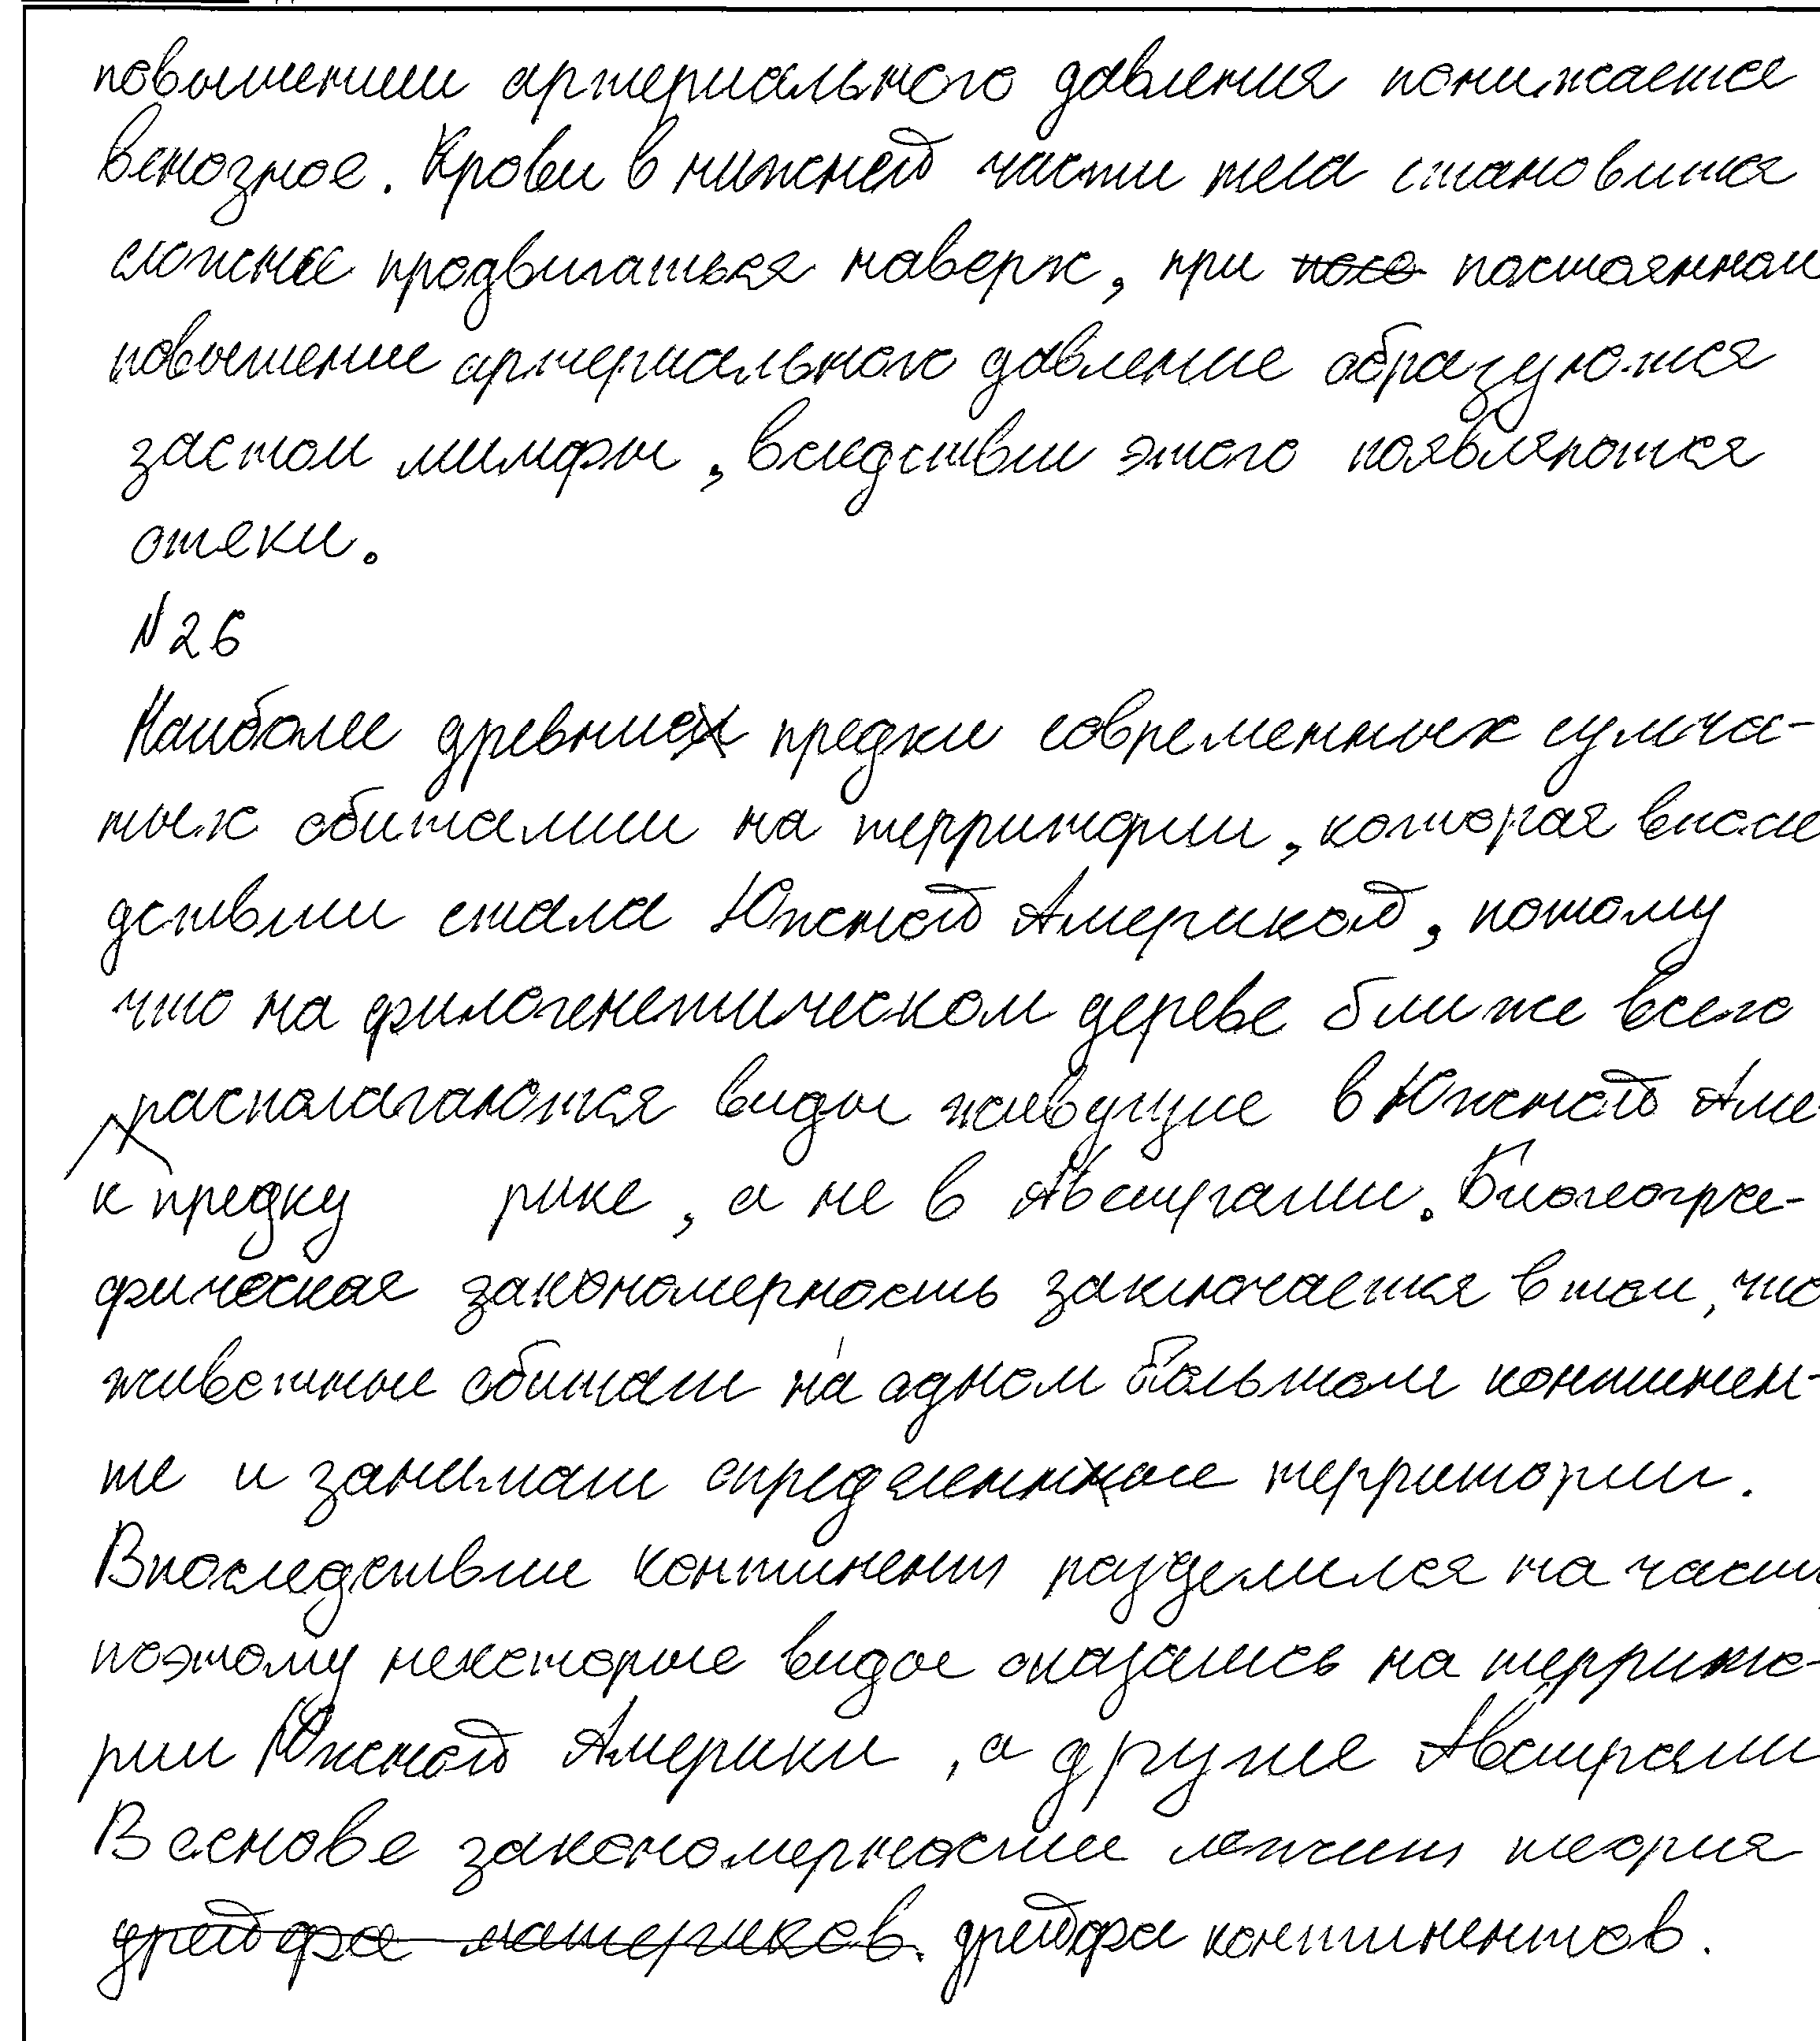 повышении артериального давления понижается
венозное. Крови в нижней части тела становится
сложнее продвигаться наверх, при постоянном
повышение артериального давление образуются
застои лимфы, вследствии этого появляются
отеки.
N26
Наиболее древние предки современных сумча-
тых обитали на территории, которая впосле
дствии стала Южной Америкой, потому
что на филогенетическом дереве ближе всего
располагаются виды живущие в Южной Аме-
к предку рике, а не в Австралии. Биогеогра-
фическая закономерность заключается в том, что
животные обитали на одном большом континен-
те и занимали определенные территории.
Впоследствие континент разделился на части,
поэтому некоторые виды оказались на террито-
рии Южной Америки, а другие Австралии
В основе закономерности лежит теория
дрейфа материков. дрейфа континентов.